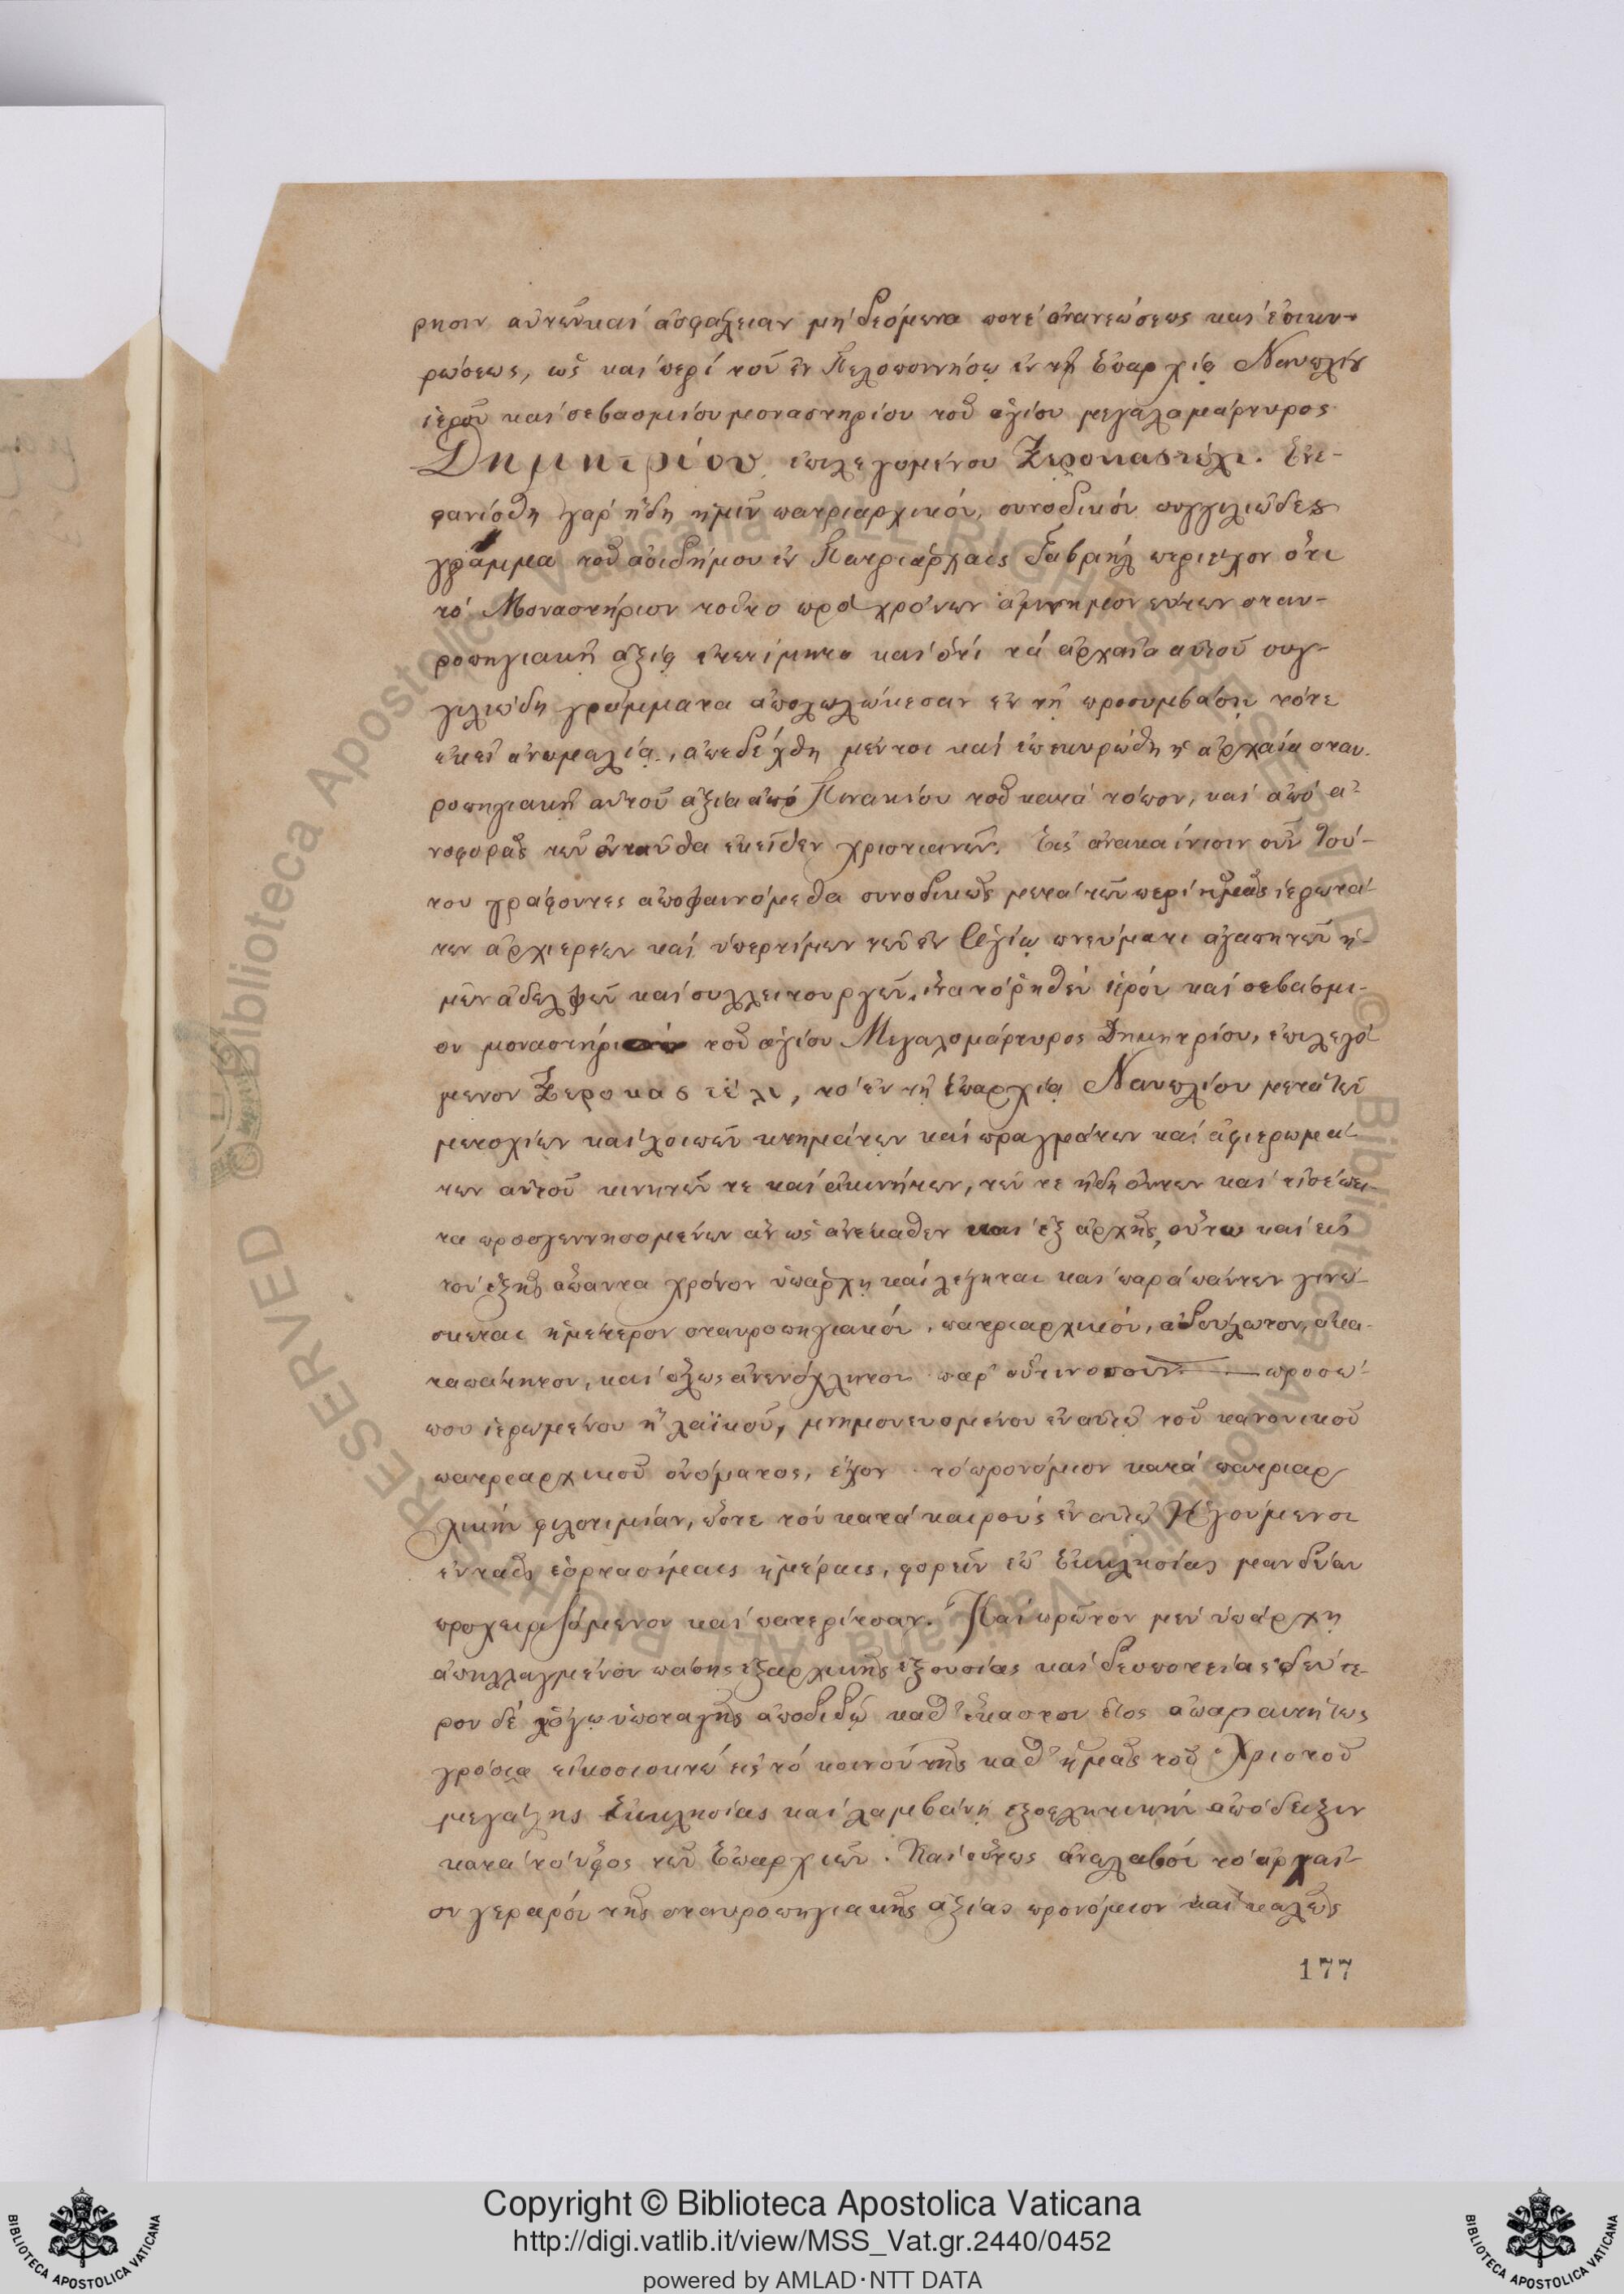 ρησιν αὐτῶν καὶ ἀσφάλειαν μὴ δεόμενα ποτὲ ἀνανεώσεως καὶ ἐπικυ-
ρώσεως, ὡς καὶ περὶ τοῦ ἐν Πελοποννήσῳ ἐν τῇ ἐπαρχίᾳ Ναυπλίου
ἱεροῦ καὶ σεβασμίου μοναστηρίου τοῦ ἁγίου μεγαλομάρτυρος
Δημητρίου ἐπιλεγομένου Ξεροκαστέλι. Ἐνε-
φανίσθη γὰρ ἤδη ἡμῖν πατριαρχικόν, συνοδικὸν συγγιλιῶδες
γράμμα τοῦ ἀοιδήμου ἐν Πατριάρχαις Γαβριὴλ περιέχον ὅτι
τὸ Μοναστήριον τοῦτο πρὸ χρόνων ἀμνημονεύτων σταυ-
ροπηγιακῇ ἀξίᾳ ἐτετίμητο καὶ ὅτι τὰ ἀρχαῖα αὐτοῦ συγ-
γιλιώδη γράμματα ἀπολωλώκεσαν ἐν τῇ προσυμβάσῃ τότε
ἐκεῖ ἀνωμαλίᾳ, ἀπεδείχθη μέντοι καὶ ἐπεκυρώθη ἡ ἀρχαία σταυ-
ροπηγιακὴ αὐτοῦ ἀξία ἀπὸ Πινακίου τοῦ κατὰ τόπον, καὶ ἀπὸ ἀ-
ναφορᾶς τῶν ἐνταῦθα ἐκεῖθεν χριστιανῶν. Εἰς ἀνακαίνισιν οὖν τού-
του γράφοντες ἀποφαινόμεθα συνοδικῶς μετὰ τῶν περὶ ἡμᾶς ἱερωτά-
των ἀρχιερέων καὶ ὑπερτίμων τῶν ἐν Ἁγίῳ πνεύματι ἀγαπητῶν ἡ-
μῶν ἀδελφῶν καὶ συλλειτουργῶν, ἵνα τὸ ῥηθὲν ἱερὸν καὶ σεβάσμι-
ον μοναστήριον τοῦ ἁγίου Μεγαλομάρτυρος Δημητρίου, ἐπιλεγό-
μενον Ξεροκαστέλι, τὸ ἐν τῇ ἐπαρχίᾳ Ναυπλίου μετὰ τῶν
μετοχίων καὶ λοιπῶν κτημάτων καὶ πραγμάτων καὶ ἀφιερωμά-
των αὐτοῦ κινητῶν τε καὶ ἀκινήτων, τῶν τε ἤδη ὄντων καὶ εἰσέπει-
τα προσγεννησομένων ἂν ὡς ἀνέκαθεν καὶ ἐξ ἀρχῆς, οὕτω καὶ εἰς
τὸν ἑξῆς ἅπαντα χρόνον ὑπάρχῃ καὶ λέγηται καὶ παρὰ πάντων γινώ-
σκεται ἡμέτερον σταυροπηγιακόν, πατριαρχικόν, ἀδούλωτον, ἀκα-
ταπάτητον, καὶ ὅλως ἀνενόχλητον παρ' οὑτινοσοῦν προσώ-
που ἱερωμένου ἢ λαϊκοῦ, μνημονευομένου ἐν αὐτῷ τοῦ κανονικοῦ
πατριαρχικοῦ ὀνόματος, ἔχον τὸ προνόμιον κατὰ πατριαρ
χικὴν φιλοτιμίαν, ὥστε τὸν κατὰ καιροὺς ἐν αὐτῷ Ἡγούμενοι
ἐν ταῖς ἑορτασίμαις ἡμέραις, φορεῖν ἐπ' ἐκκλησίας μανδύαν
προχειριζόμενον καὶ πατερίτσαν. Καὶ πρῶτον μὲν ὑπάρχῃ
ἀπηλλαγμένον πάσης ἐξαρχικῆς ἐξουσίας καὶ δεσποτείας δεύτε-
ρον δὲ λόγῳ ὑποταγῆς ἀποδιδῷ καθ' ἕκαστον ἔτος ἀπαραιτήτως
γρόσια εἰκοσιοκτὼ εἰς τὸ κοινὸν τῆς καθ' ἡμᾶς τοῦ Χριστοῦ
μεγάλης ἐκκλησίας καὶ λαμβάνῃ ἐξοφλητικὴν ἀπόδειξιν
κατὰ τὸ ὕφος τῶν ἐπαρχιῶν. Καὶ οὕτως ἀναλαβὸν τὸ ἀρχαῖ-
ον γεραρὸν τῆς σταυροπηγιακῆς ἀξίας προνόμιον καὶ καλῶς
177
© Biblioteca Apostolica Vaticana ALL RIGHTS RESERVED
Copyright © Biblioteca Apostolica Vaticana
http://digi.vatlib.it/view/MSS_Vat.gr.2440/0452
powered by AMLAD·NTT DATA
BIBLIOTECA APOSTOLICA VATICANA
BIBLIOTECA APOSTOLICA VATICANA